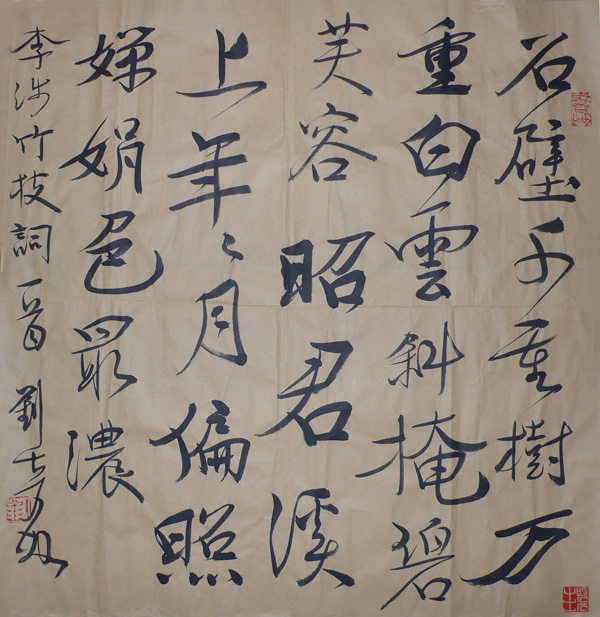 石壁千重樹万
重白雲斜掩碧
芙容昭君溪
上年〻月偏照
嬋娟色最濃
李涉竹枝詞一首 劉